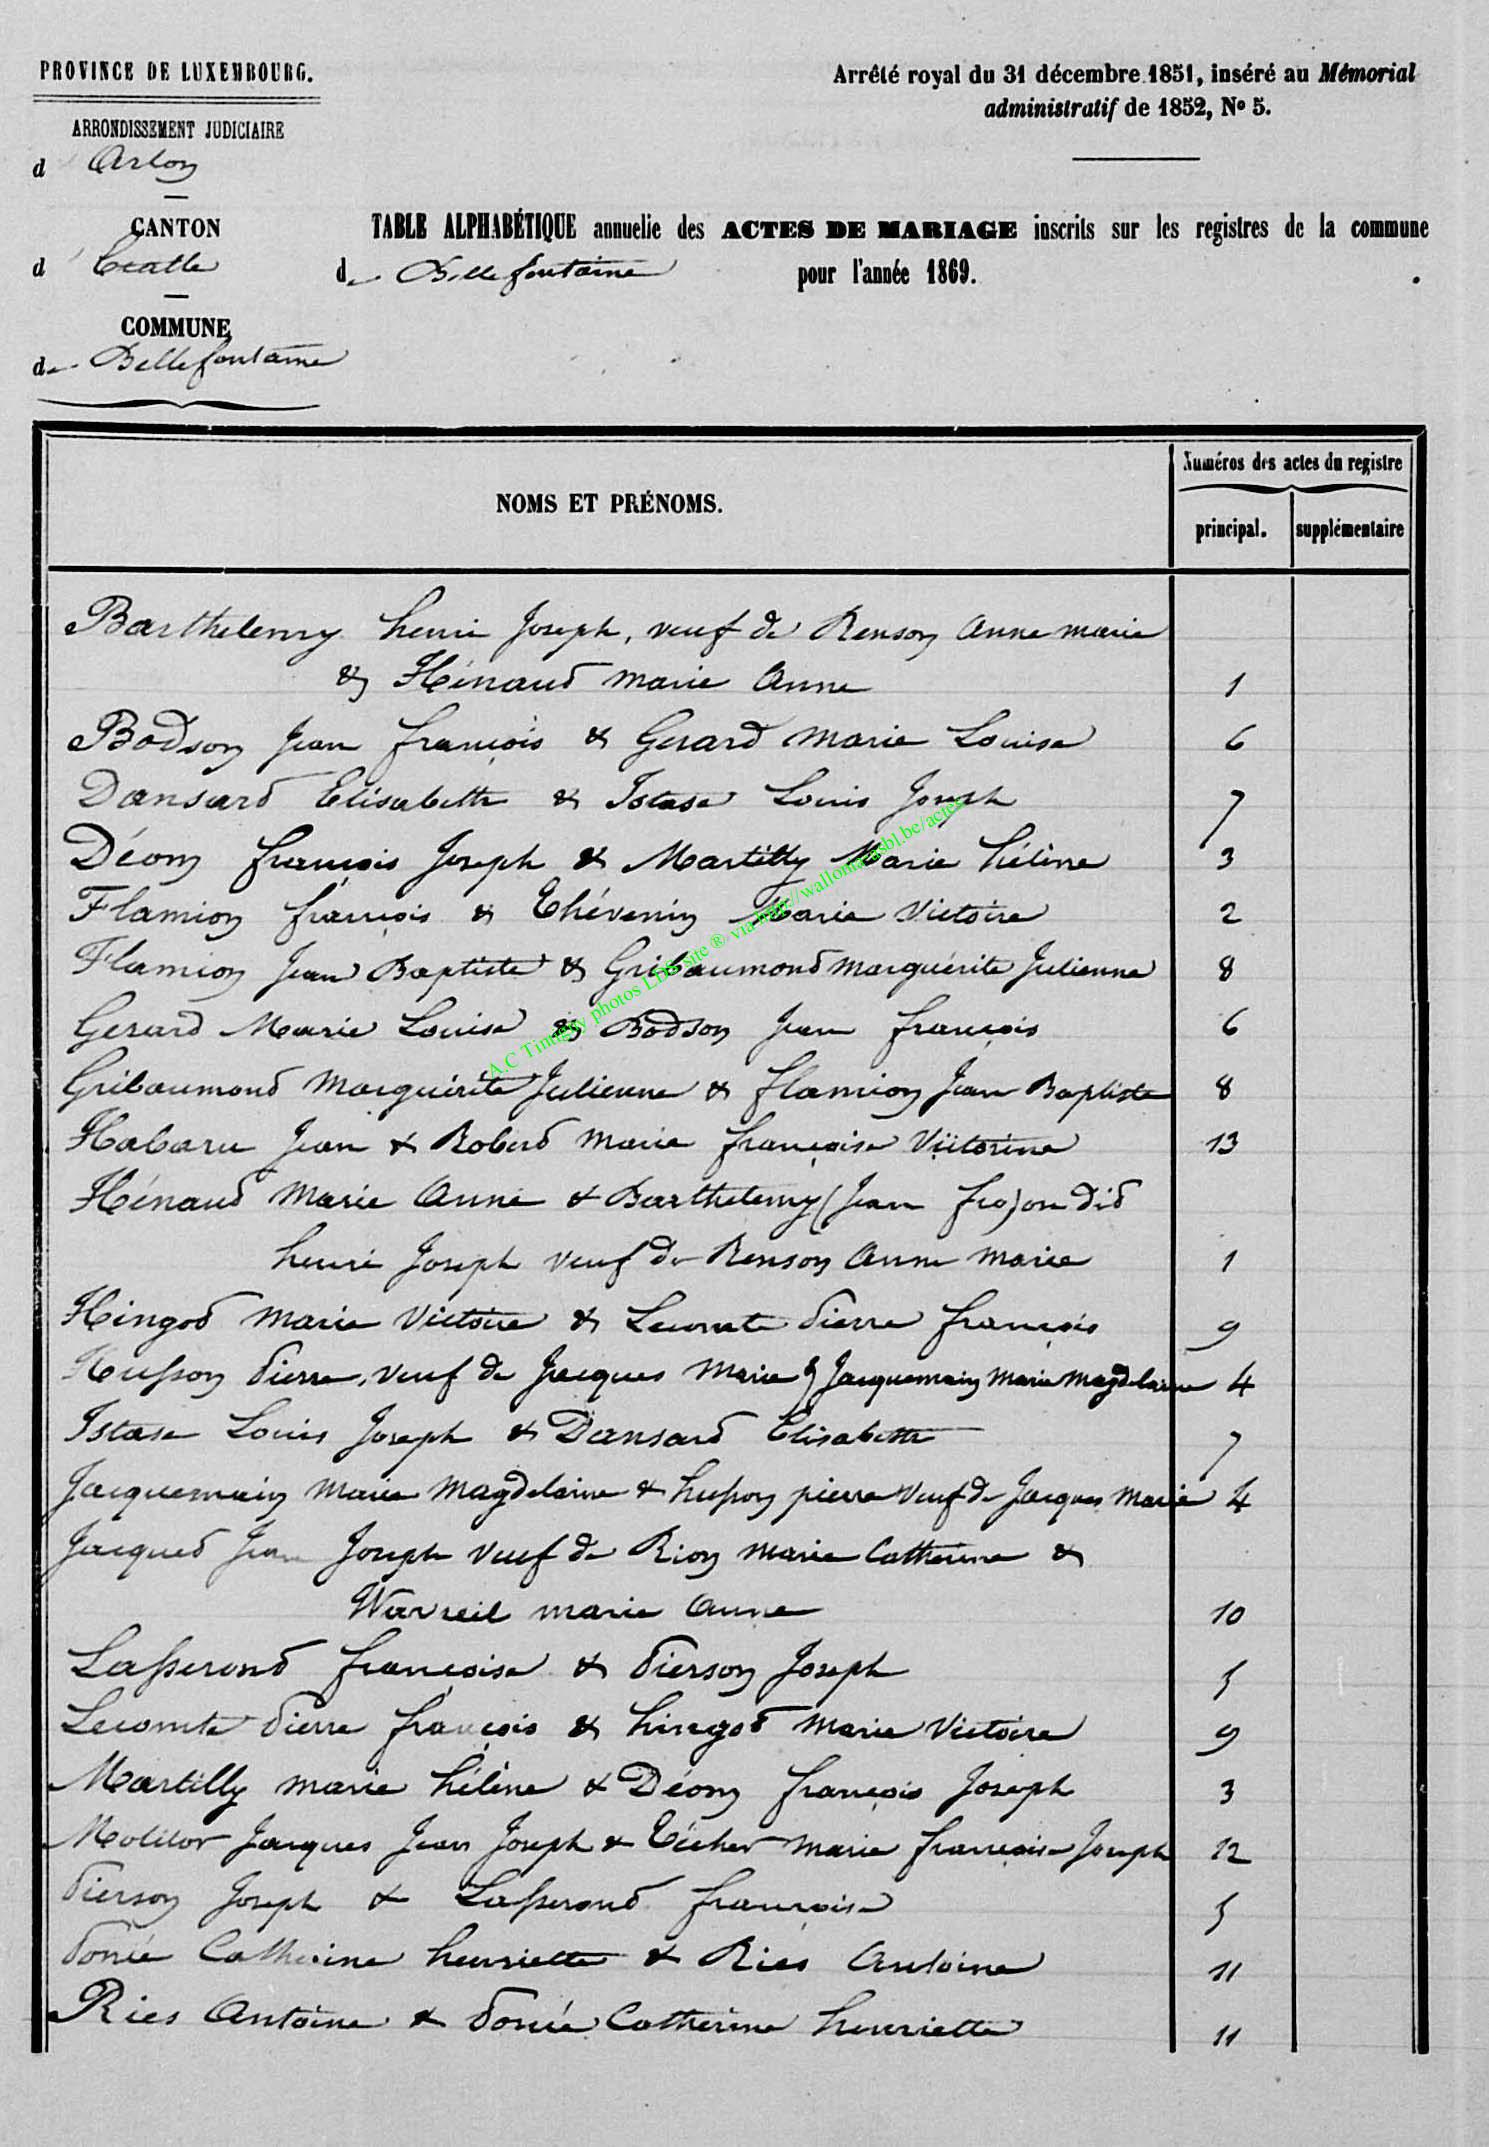 PROVINCE DE LUXEMBOURG.
ARRONDISSEMENT JUDICIAIRE
d Arlon
CANTON
d' Etalle
COMMUNE
de Bellefontaine
Arrêté royal du 31 décembre 1851, inséré au Mémorial
administratif de 1852, No 5.
TABLE ALPHABÉTIQUE annuelle des ACTES DE MARIAGE inscrits sur les registres de la commune
de Bellefontaine pour l'année 1869.
NOMS ET PRÉNOMS.
Numéros des actes du registre
principal. supplémentaire
Barthelemy henri Joseph, veuf de Renson Anne marie
& Hénaud marie Anne 1
Bodson Jean françois & Gerard Marie Louise 6
Dansard Elisabeth & Istase Louis Joseph 7
Déom françois Joseph & Martilly Marie hélène 3
Flamion françois & Thévenin Marie Victoire 2
Flamion Jean Baptiste & Gribaumond marguérite Julienne 8
Gerard Marie Louise & Bodson Jean françois 6
Gribaumond Marguérite Julienne & flamion Jean Baptiste 8
Habaru Jean & Robert Marie françoise Victorine 13
Hénaud Marie Anne & Barthelemy (Jean fço) ou dit
henri Joseph veuf de Renson Anne Marie 1
Hingot Marie Victoire & Lecomte Pierre françois 9
Husson Pierre, veuf de Jacques Marie & Jacquemain Marie Magdelaine 4
Istase Louis Joseph & Dansard Elisabeth 7
Jacquemain Marie Magdelaine & husson pierre Veuf de Jacques Marie 4
Jacquet Jean Joseph veuf de Rion Marie Catherine &
Warreil marie Anne 10
Lasserond françoise & Pierson Joseph 5
Lecomte Pierre françois & hingot Marie Victoire 9
Martilly marie hélène & Déom françois Joseph 3
Molitor Jacques Jean Joseph & marie françoise Joseph 12
Pierson Joseph & Lasserond françoise 5
Poncé Catherine henriette & Ries Antoine 11
Ries Antoine & Poncé Catherine henriette 11
A.C Tintigny photos LDS site ® via http://wallonia-asbl.be/actes